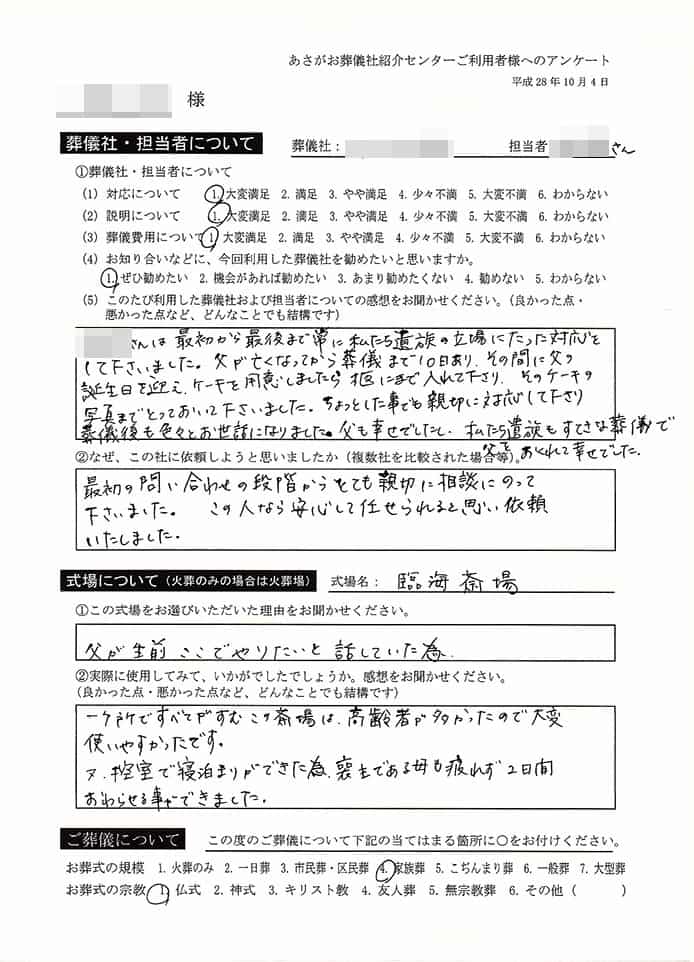 あさがお葬儀社紹介センターご利用者様へのアンケート
平成28年10月4日
様
葬儀社・担当者について 葬儀社： 担当者 さん
①葬儀社・担当者について
(1) 対応について 1. 大変満足 2. 満足 3. やや満足 4. 少々不満 5. 大変不満 6. わからない
(2) 説明について 1. 大変満足 2. 満足 3. やや満足 4. 少々不満 5. 大変不満 6. わからない
(3) 葬儀費用について 1. 大変満足 2. 満足 3. やや満足 4. 少々不満 5. 大変不満 6. わからない
(4) お知り合いなどに、今回利用した葬儀社を勧めたいと思いますか。
1. ぜひ勧めたい 2. 機会があれば勧めたい 3. あまり勧めたくない 4. 勧めない 5. わからない
(5) このたび利用した葬儀社および担当者についての感想をお聞かせください。（良かった点・
悪かった点など、どんなことでも結構です）
さんは最初から最後まで常に私たち遺族の立場にたった対応を
して下さいました。父が亡くなってから葬儀まで10日あり、その間に父の
誕生日を迎え、ケーキを用意しましたら柩にまで入れて下さり、そのケーキの
写真までとっておいて下さいました。ちょっとした事でも親切に対応して下さり
葬儀後も色々とお世話になりました。父も幸せでしたし、私たち遺族もすてきな葬儀で
父をおくれて幸せでした。
②なぜ、この社に依頼しようと思いましたか（複数社を比較された場合等）。
最初の問い合わせの段階からとても親切に相談にのって
下さいました。 この人なら安心して任せられると思い依頼
いたしました。
式場について（火葬のみの場合は火葬場） 式場名： 臨海斎場
①この式場をお選びいただいた理由をお聞かせください。
父が生前ここでやりたいと話していた為。
②実際に使用してみて、いかがでしたでしょうか。感想をお聞かせください。
（良かった点・悪かった点など、どんなことでも結構です）
一ヶ所ですべてがすむこの斎場は、高齢者が多かったので大変
使いやすかったです。
又、控室で寝泊まりができた為、喪主である母も疲れず2日間
おわらせる事ができました。
ご葬儀について この度のご葬儀について下記の当てはまる箇所に○をお付けください。
お葬式の規模 1. 火葬のみ 2. 一日葬 3. 市民葬・区民葬 4. 家族葬 5. こぢんまり葬 6. 一般葬 7. 大型葬
お葬式の宗教 1. 仏式 2. 神式 3. キリスト教 4. 友人葬 5. 無宗教葬 6. その他 ( )